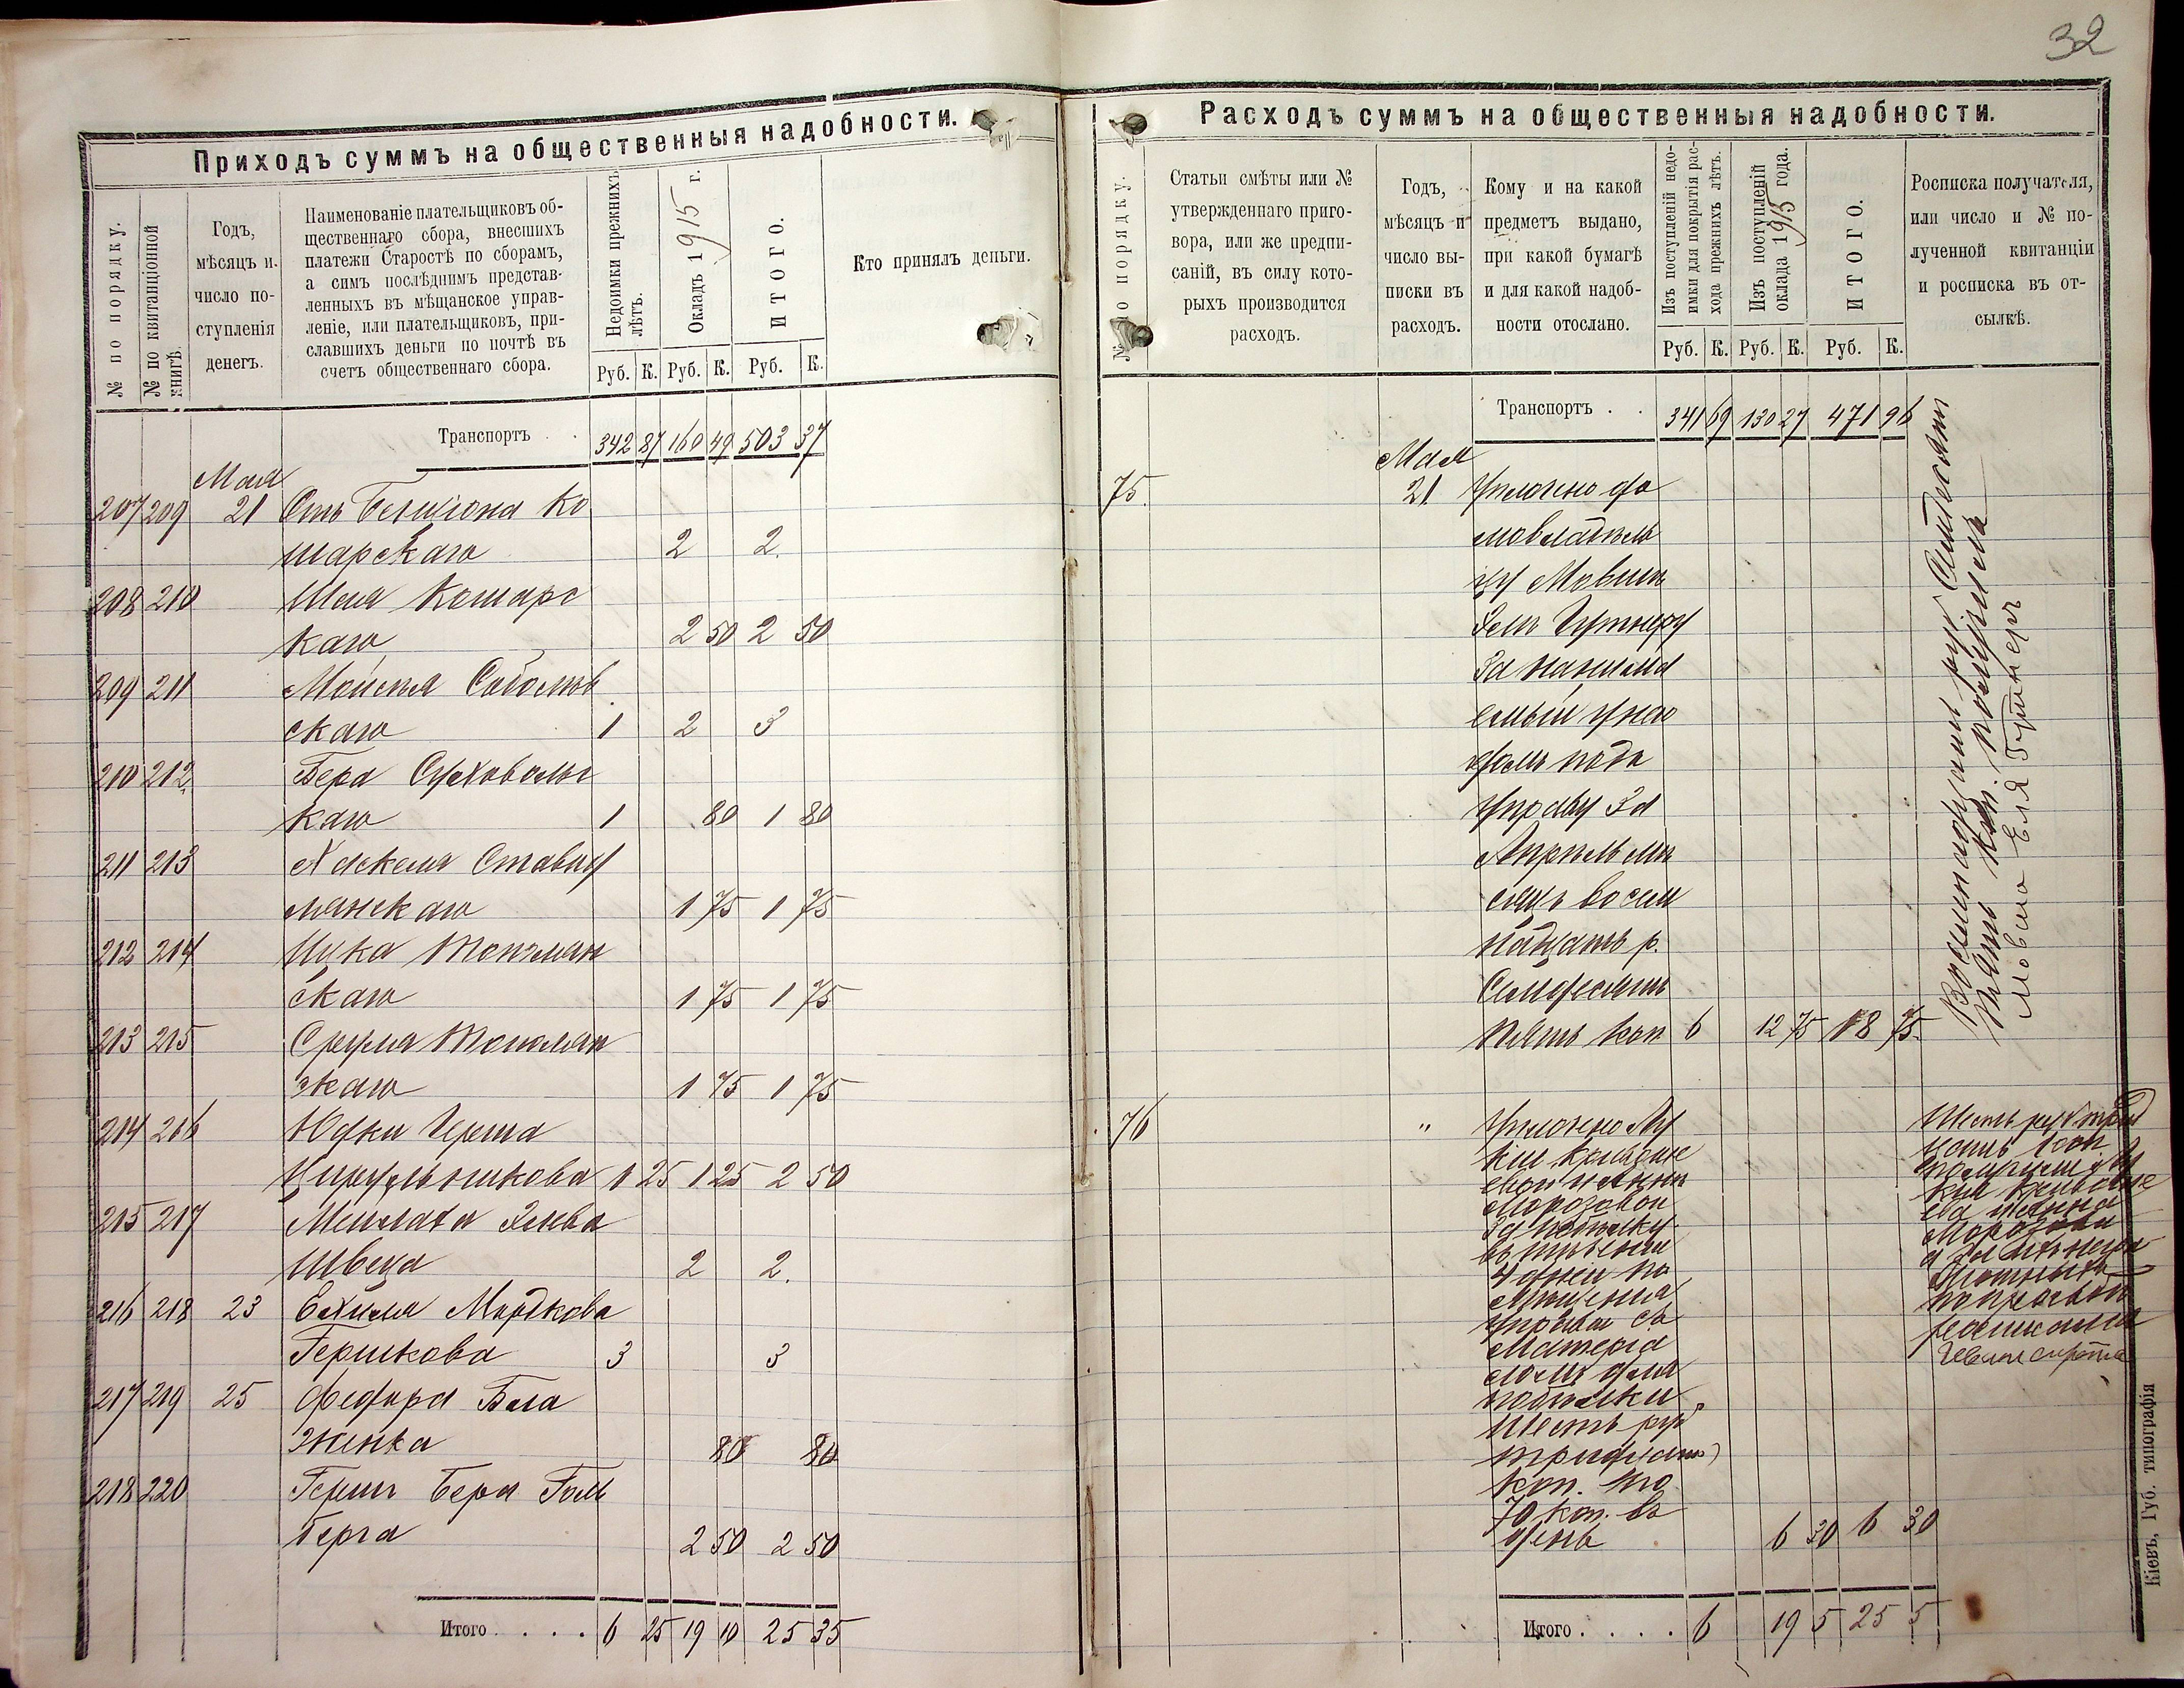 32
Приходъ суммъ на общественныя надобности.
№ по порядку.
№ по квитанціонной
книгѣ.
Годъ,
мѣсяцъ и
число по-
ступленія
денегъ.
Наименованіе плательщиковъ об-
щественнаго сбора, внесшихъ
платежи Старостѣ по сборамъ,
а симъ послѣднимъ представ-
ленныхъ въ мѣщанское управ-
леніе, или плательщиковъ, при-
славшихъ деньги по почтѣ въ
счетъ общественнаго сбора.
Недоимки прежнихъ
лѣтъ.
Окладъ 1915 г.
ИТОГО.
Руб. К. Руб. К. Руб. К.
Кто принялъ деньги.
Транспортъ . . 342 87 160 49 503 37
Мая
207 209 21 Отъ Бенціона Ко
шарскаго 2 2.
208 210 Шея Кошарс
каго 2 50 2 50
209 211 Мойсея Соболев
скаго 1 2 3
210 212 Бера Суховольс
каго 1 80 1 80
211 213 Хаскеля Ставиц
лянскаго 1 75 1 75
212 214 Ицка Топчлян
скаго 1 75 1 75
213 215 Срула Топчлян
скаго 1 75 1 75
214 216 Юдки Герша
Цирульникова 1 25 1 25 2 50
215 217 Мейлаха Янева
Швеца 2 2.
216 218 23 Ехиля Мордкова
Гершкова 3 3
217 219 25 Федора Бала
женка 80 80
218 220 Герш Бера Голь
берга 2 50 2 50
Итого . . . . 6 25 19 10 25 35
Расходъ суммъ на общественныя надобности.
№ по порядку.
Статьи смѣты или №
утвержденнаго приго-
вора, или же предпи-
саній, въ силу кото-
рыхъ производится
расходъ.
Годъ,
мѣсяцъ и
число вы-
писки въ
расходъ.
Кому и на какой
предметъ выдано,
при какой бумагѣ
и для какой надоб-
ности отослано.
Изъ поступленій недо-
имки для покрытія рас-
хода прежнихъ лѣтъ.
Изъ поступленій
оклада 1915 года.
ИТОГО.
Руб. К. Руб. К. Руб. К.
Росписка получателя,
или число и № по-
лученной квитанціи
и росписка въ от-
сылкѣ.
Транспортъ . . 341 69 130 27 471 96
Мая
75. 21 Уплочено до
мовладѣль
цу Мовши
Еля Гутнеру
За нанима
емый у него
домъ подъ
управу За
Апрѣль мѣ
сяцъ восем
надцать р.
Семдесятъ
пять коп 6 12 75 18 75.
Восемнадцать руб. Семдесять
пять коп. получилъ
Мовша Еля Гутнеръ
76 " Уплочено Лу
кіи
Морозовой
За побѣлку
въ теченіи
4 дней по
мѣщенія
управы съ
матеріа
ломъ для
побѣлки
шесть руб
тридцать
коп. по
70 коп. въ
день 6 30 6 30
Шесть руб трид
цать коп
получили
Морозова
неграмотныхъ
по просьбѣ
росписался
Итого . . . . 6 19 5 25 5
Кіевъ, Губ. типографія